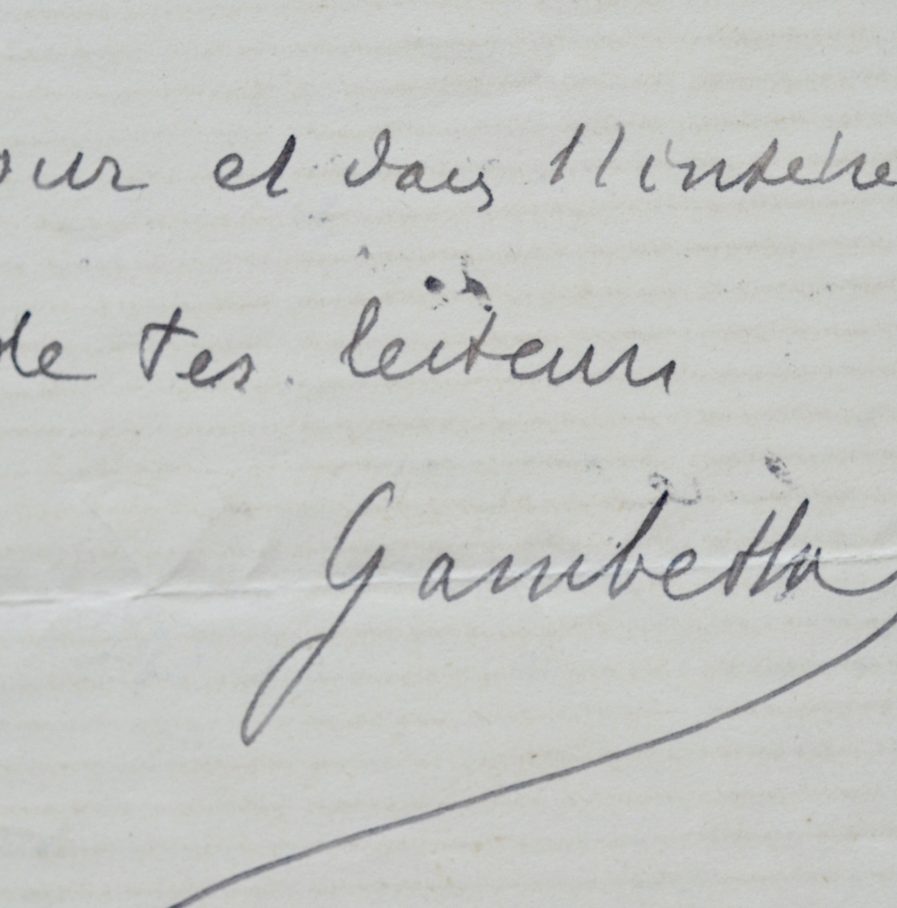 our et dans l'intére
de tes lecteurs
Gambetta